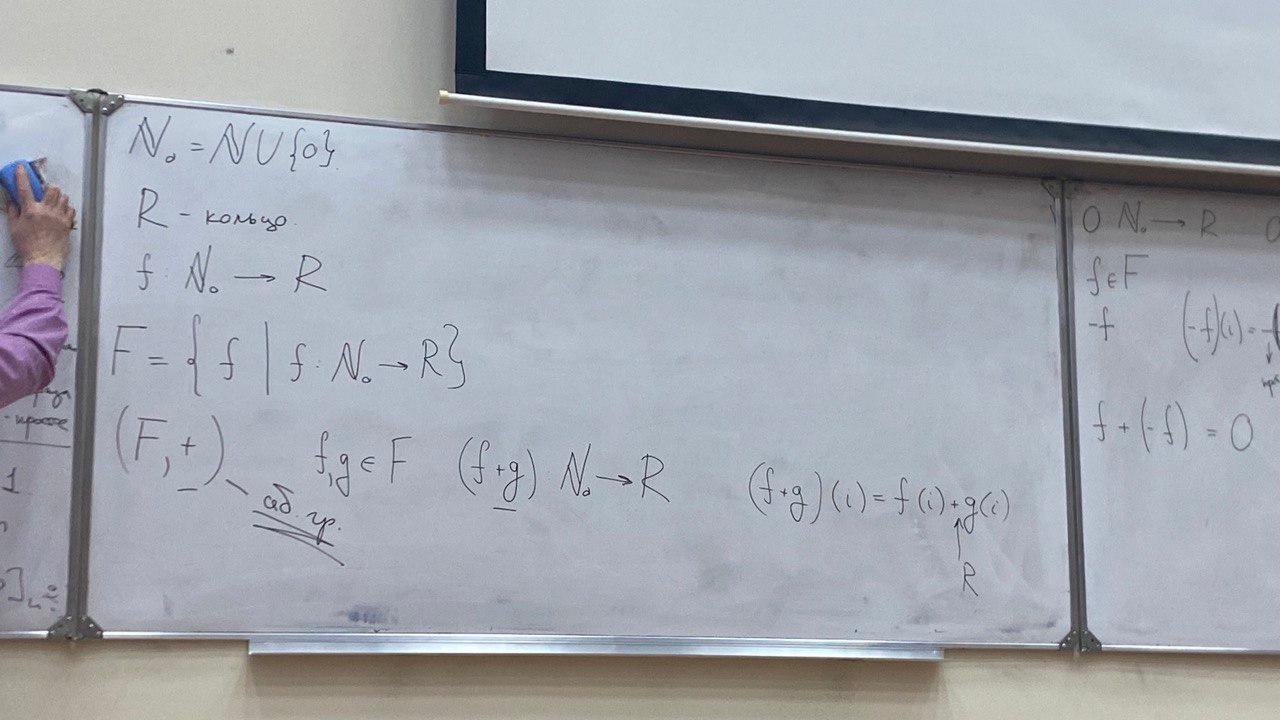 1
N₀ = N ∪ {0}.
R - кольцо.
f: N₀ → R
F = { f | f: N₀ → R}
(F, +) аб. гр. f,g ∈ F (f+g): N₀ → R (f+g)(i) = f(i)+g(i)
R
0 N₀ → R
f ∈ F
-f (-f)(i) = -(
f + (-f) = 0